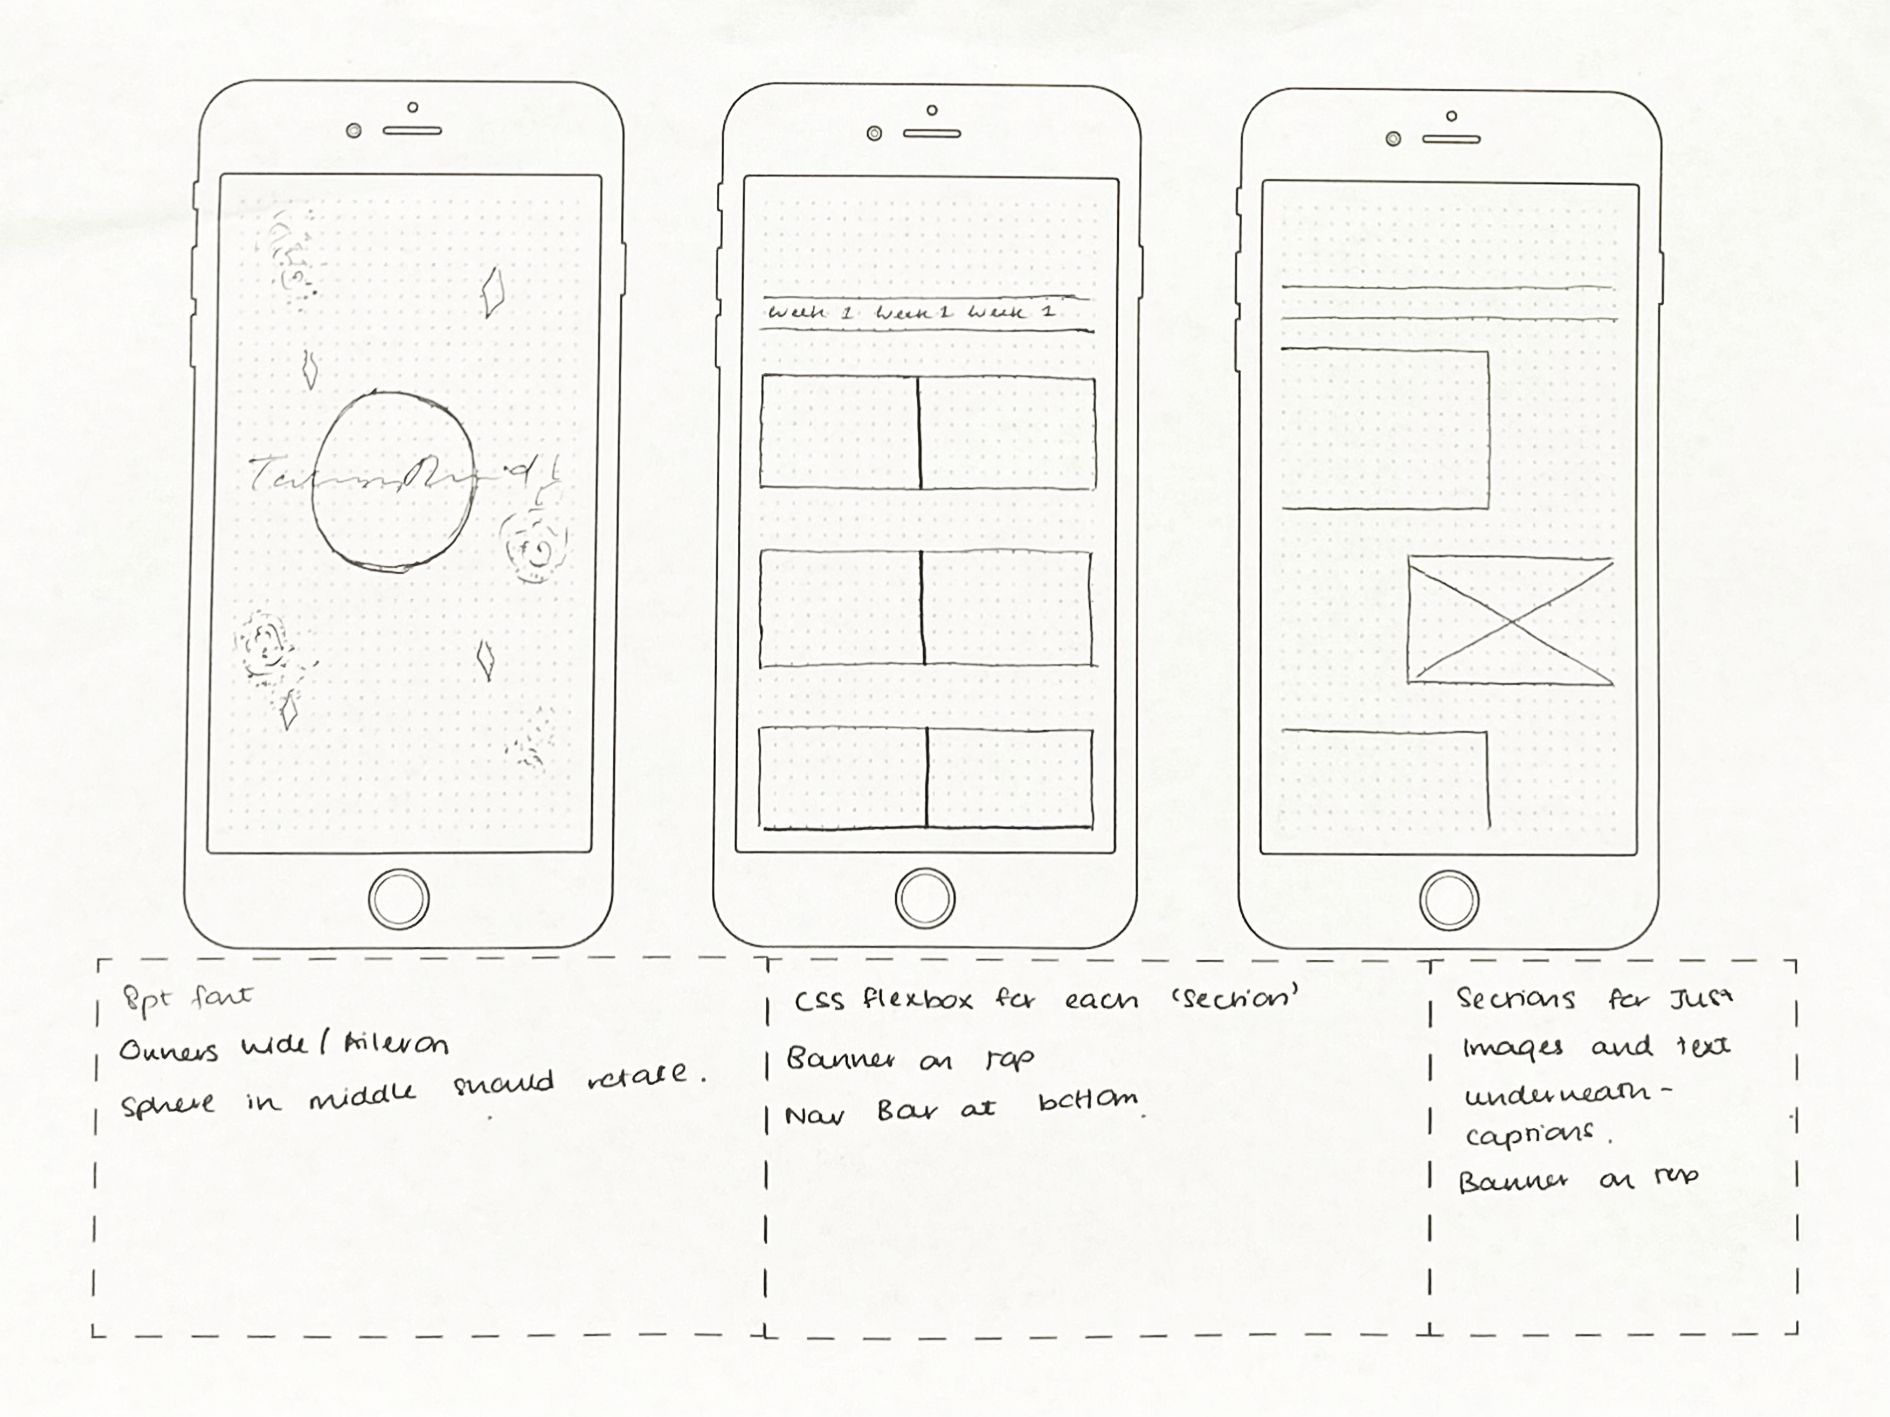 Week 1 Week 1 Week 1
8pt font
Owners wide / Aileron
Sphere in middle should rotate.
CSS flexbox for each 'section'
Banner on top
Nav Bar at bottom.
Sections for Just
Images and text
underneath -
captions.
Banner on top